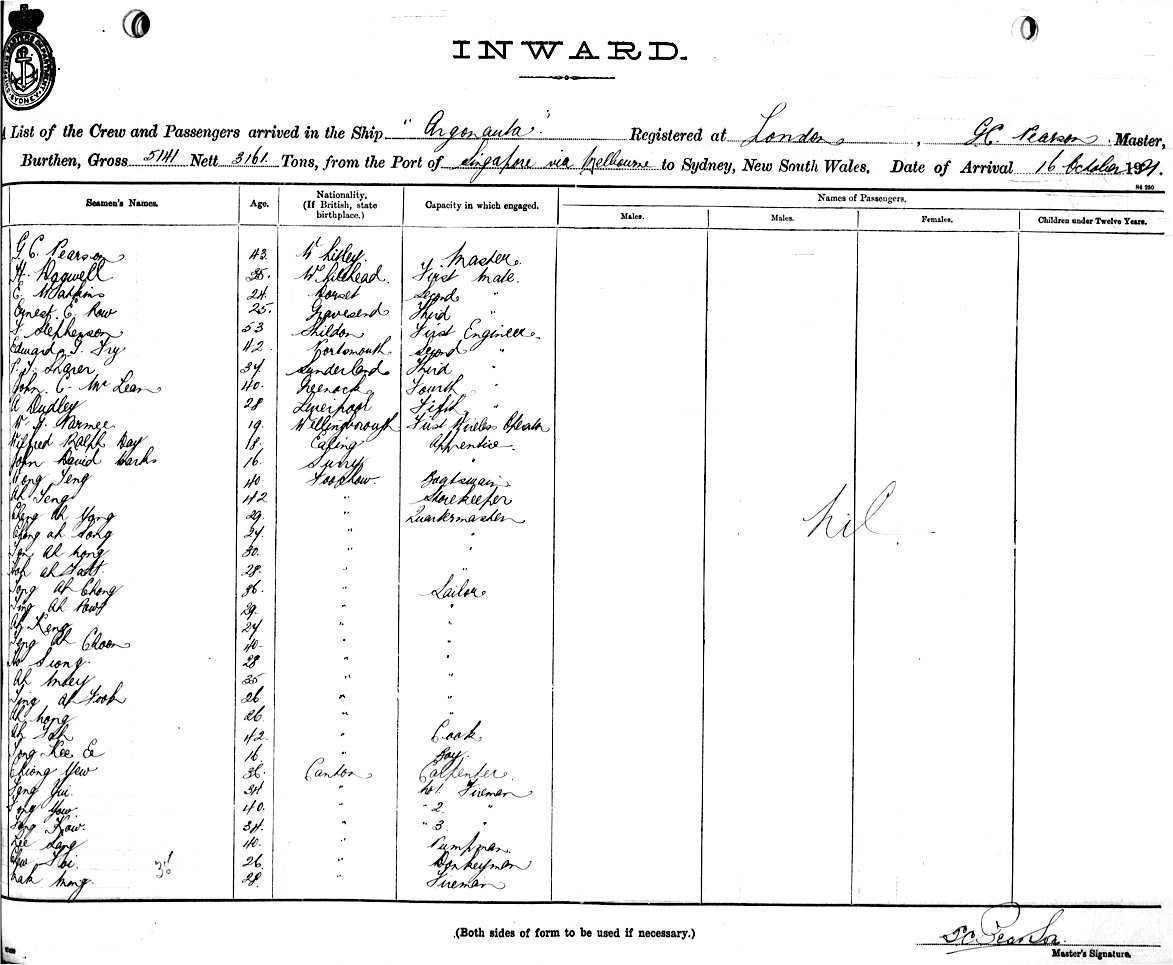 SHIPPING MASTERS DEPARTMENT SYDNEY
INWARD.
List of the Crew and Passengers arrived in the Ship "Argonauta" Registered at London, G.C. Pearson Master,
Burthen, Gross 5141 Nett 3161 Tons, from the Port of Singapore via Melbourne to Sydney, New South Wales. Date of Arrival 16 October 1921.
S4 250
Seamen's Names. Age. Nationality. (If British, state birthplace.) Capacity in which engaged. Names of Passengers.
Males. Males. Females. Children under Twelve Years.
G C. Pearson 43. Master.
H. Bagwell 35. First Mate.
E Watkins 24. Dorset Second "
Ernest. E. Row 25. Gravesend Third "
F. Stephenson 53 Shildon First Engineer.
Edward J. Fry 42 Portsmouth Second "
34 Sunderland Third "
John. C. Mc Lean 40. Greenock Fourth "
A Dudley 28 Liverpool Fifth "
W. J. Parmee 19. Wellingborough First Wireless Operator
Wilfred Ralph Day 18. Ealing Apprentice.
John David Marks 16. Surry "
Wong Teng 40 Foochow. Boatswain
Ah Teng 42 " Storekeeper
Cheng Ah Yong 29. " Quartermaster
Cheng ah Song 24. " "
Tan Ah hong 30. " "
28. " "
Tong Ah Chong 36. " Sailor
Ting Ah 29. " "
Ah Keng 24 " "
Teng Ah Choon 40. " "
Siong. 28 " "
Ah 35 " "
Ting Ah Fook 26 " "
Ah hong 26. " "
Ah 42. " Cook
Tong Kee Ee 16. " Boy.
Chiong Yew 36. Canton Carpenter.
34 " No 1. Fireman
40. " " 2. "
34. " " 3. "
Lee Sang 40. " Pumpman
26. " Donkeyman
Mak Mong. 28. " Fireman
nil.
(Both sides of form to be used if necessary.)
G C Pearson.
Master's Signature.